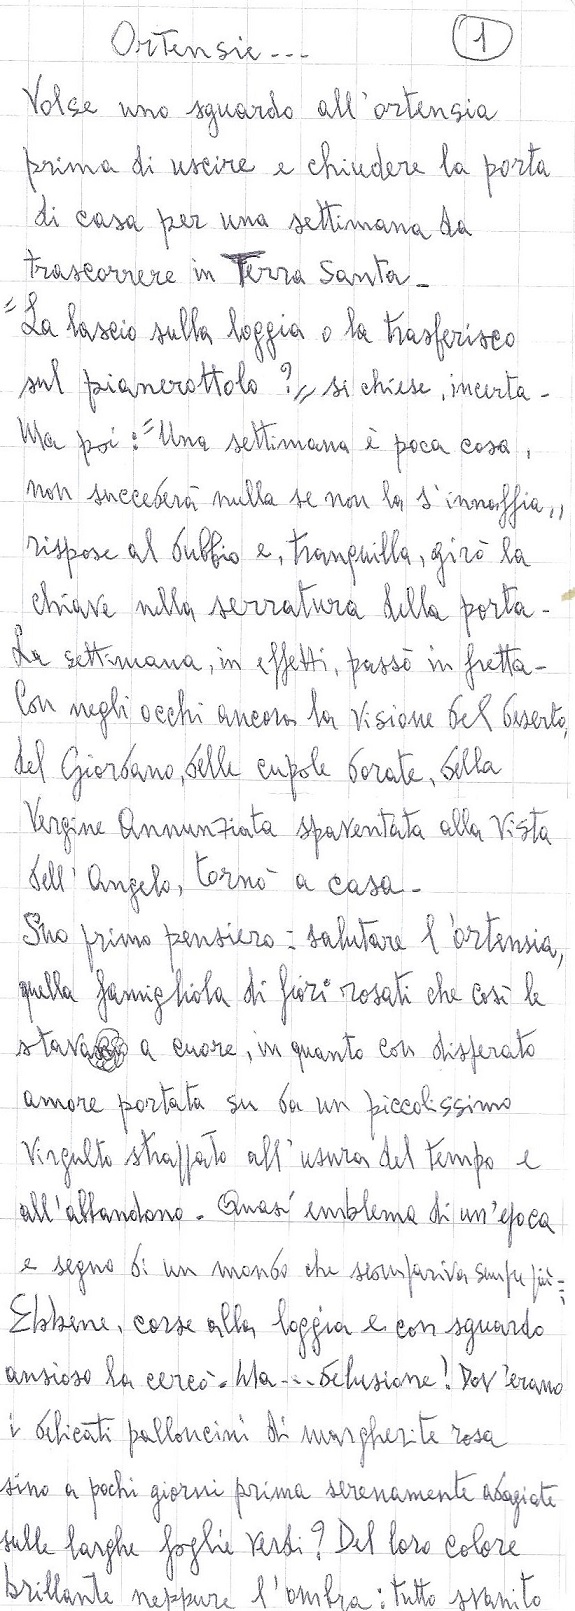 Ortensie...
1
Volse uno sguardo all'ortensia
prima di uscire e chiudere la porta
di casa per una settimana da
trascorrere in Terra Santa_
"La lascio sulla loggia o la trasferisco
sul pianerottolo?" si chiese, incerta-
Ma poi: "Una settimana è poca cosa,
non succederà nulla se non la s'innaffia"
rispose al dubbio e, tranquilla, girò la
chiave nella serratura della porta-
La settimana, in effetti, passò in fretta-
Con negli occhi ancora la visione del deserto,
del Giordano, delle cupole dorate, della
Vergine Annunziata spaventata alla vista
dell'Angelo, tornò a casa_
Suo primo pensiero: salutare l'ortensia,
quella famigliola di fiori rosati che così le
stava a cuore, in quanto con disperato
amore portata su da un piccolissimo
virgulto strappato all'usura del tempo e
all'abbandono. Quasi emblema di un'epoca
e segno di un mondo che scompariva sempre più:
Ebbene, corse alla loggia e con sguardo
ansioso la cercò. Ma... delusione! Dov'erano
i delicati palloncini di margherite rosa
sino a pochi giorni prima serenamente adagiate
sulle larghe foglie verdi? Del loro colore
brillante neppure l'ombra: tutto svanito